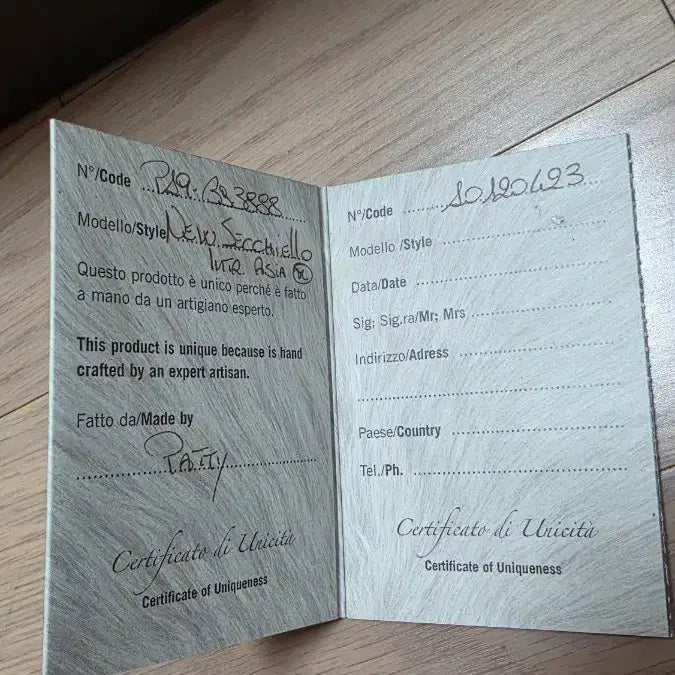 N°/Code P19.BS3888
Modello/Style New Secchiello
Intr. Asia SC
Questo prodotto è unico perché è fatto
a mano da un artigiano esperto.
This product is unique because is hand
crafted by an expert artisan.
Fatto da/Made by
Patty
Certificato di Unicità
Certificate of Uniqueness
N°/Code 10120423
Modello /Style
Data/Date
Sig; Sig.ra/Mr; Mrs
Indirizzo/Adress
Paese/Country
Tel./Ph.
Certificato di Unicità
Certificate of Uniqueness